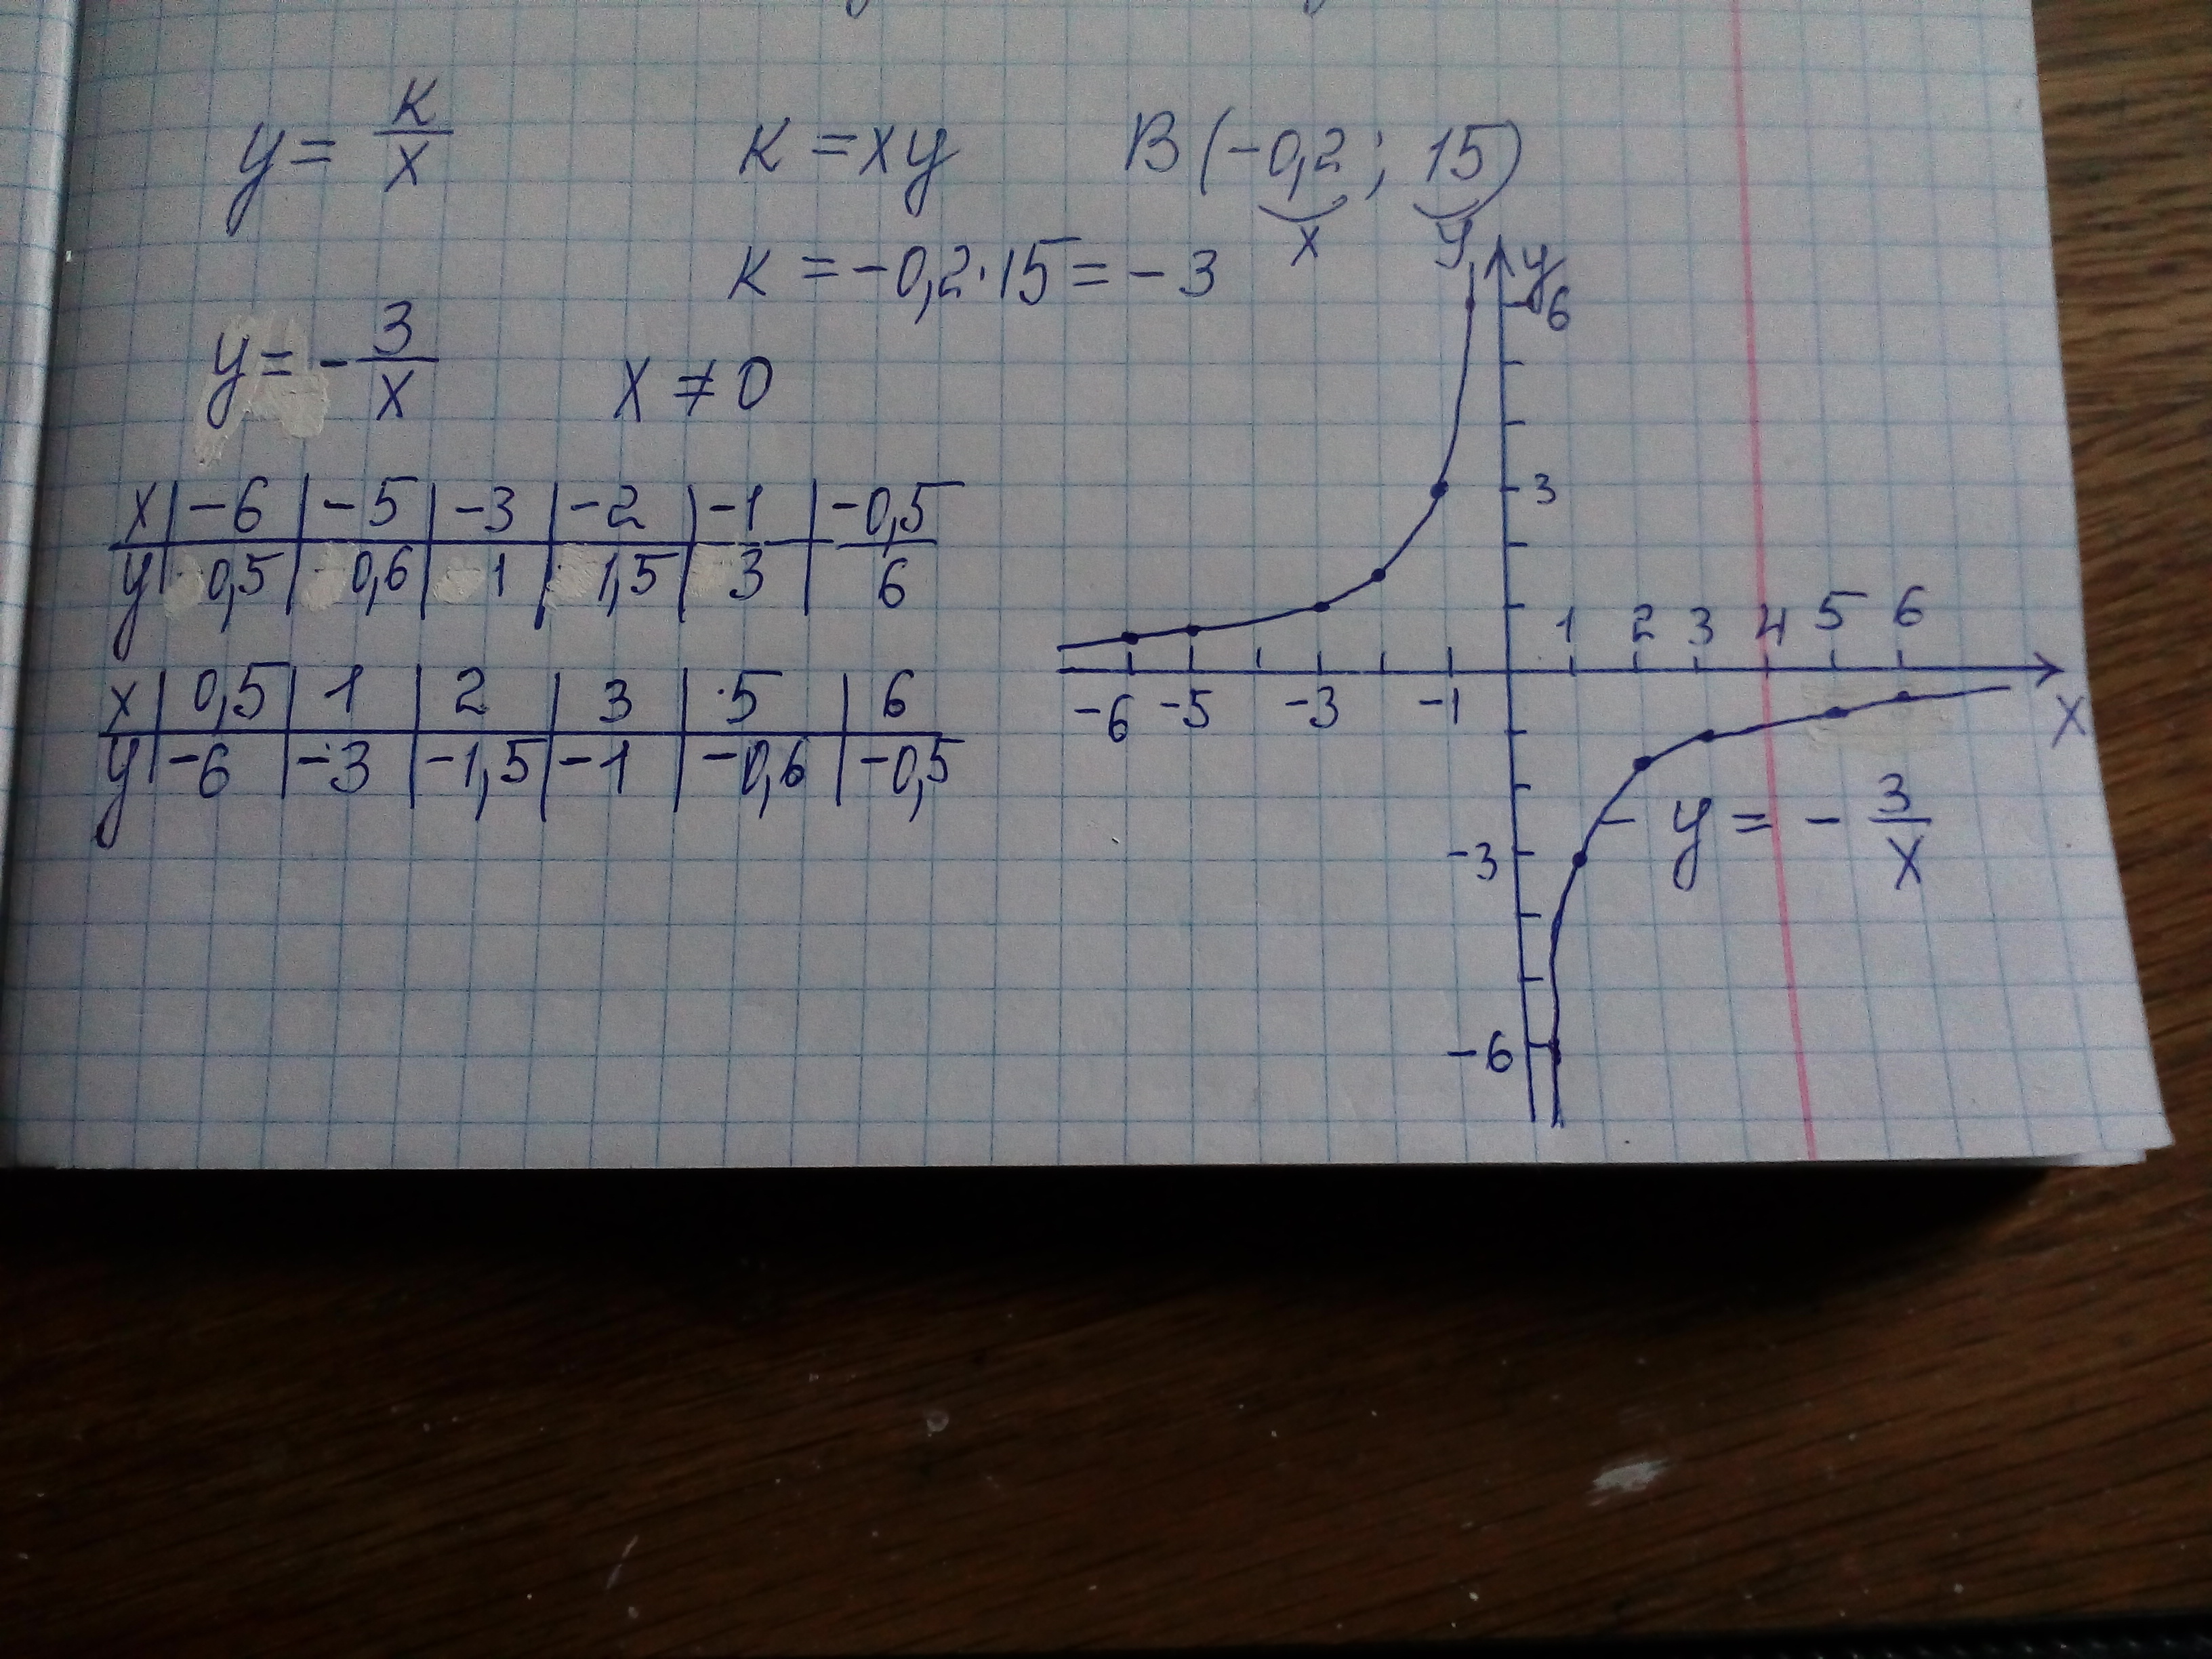 y = к/x   к = xy   В(-0,2 ; 15)
x   y
к = -0,2·15 = -3
y = -3/x   x ≠ 0
x | -6 | -5 | -3 | -2 | -1 | -0,5
y | 0,5 | 0,6 | 1 | 1,5 | 3 | 6
x | 0,5 | 1 | 2 | 3 | 5 | 6
y | -6 | -3 | -1,5 | -1 | -0,6 | -0,5
y
6
3
1 2 3 4 5 6
-6 -5 -3 -1 x
y = -3/x
-3
-6